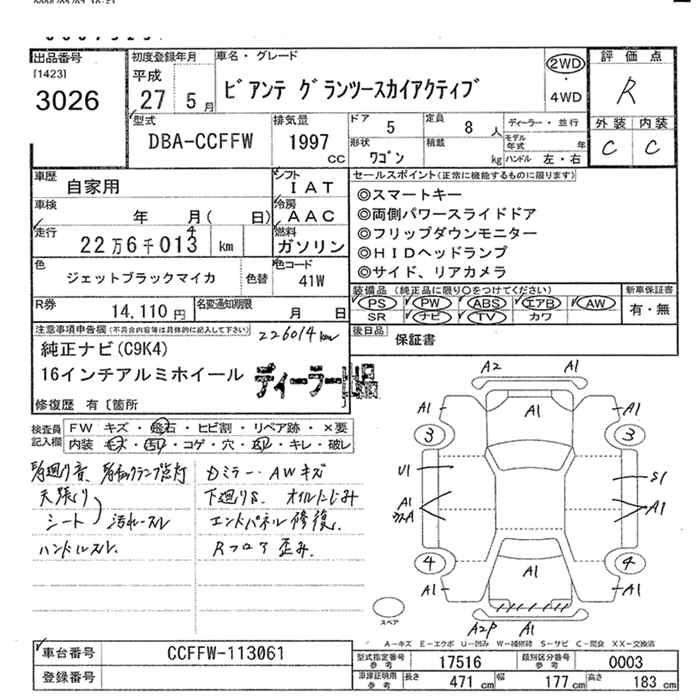 出品番号
[1423]
3026
初度登録年月
平成
27 5月
車名・グレード
ビアンテ グランツースカイアクティブ
2WD
・
4WD
評価点
R
外装 内装
C C
型式
DBA-CCFFW
排気量
1997
CC
ドア
5
定員
8 人
形状
ワゴン
積載
kg
ディーラー・並行
モデル年式 年
ハンドル 左・右
車歴
自家用
シフト
IAT
車検
年 月( 日)
冷房
AAC
走行
22万6千013 km
4
燃料
ガソリン
色
ジェットブラックマイカ
色替
色コード
41W
R券
14,110円
名変通知期限
月 日
セールスポイント(正常に機能するものに限ります)
◎スマートキー
◎両側パワースライドドア
◎フリップダウンモニター
◎HIDヘッドランプ
◎サイド、リアカメラ
装備品(純正品に限り○をつけてください)
PS PW ABS エアB AW
SR ナビ TV カワ
新車保証書
有・無
後日品
保証書
注意事項申告欄(不具合内容等は具体的に記入して下さい)
226014km
純正ナビ(C9K4)
16インチアルミホイール
ディーラー出品
修復歴 有〔箇所
検査員記入欄
FW キズ・飛石・ヒビ割・リペア跡・×要
内装 ・コゲ・穴・ ・キレ・破レ
天張り
シート 汚れ・スレ
ハンドルスレ.
Dミラー・AWキズ
下廻りS. オイルにじみ
エンドパネル修復.
Rフロア歪み.
A2
A1 A1 A1
3 3
A1
U1 S1
A1 A1
4 4
A1
A1 A1
A2P A1
スペア
A-キズ E-エクボ U-凹み W-補修跡 S-サビ C-腐食 XX-交換済
車台番号
CCFFW-113061
登録番号
型式指定番号
参考
17516
類別区分番号
参考
0003
車庫証明用
参考
長さ
471 cm
幅
177 cm
高さ
183 cm